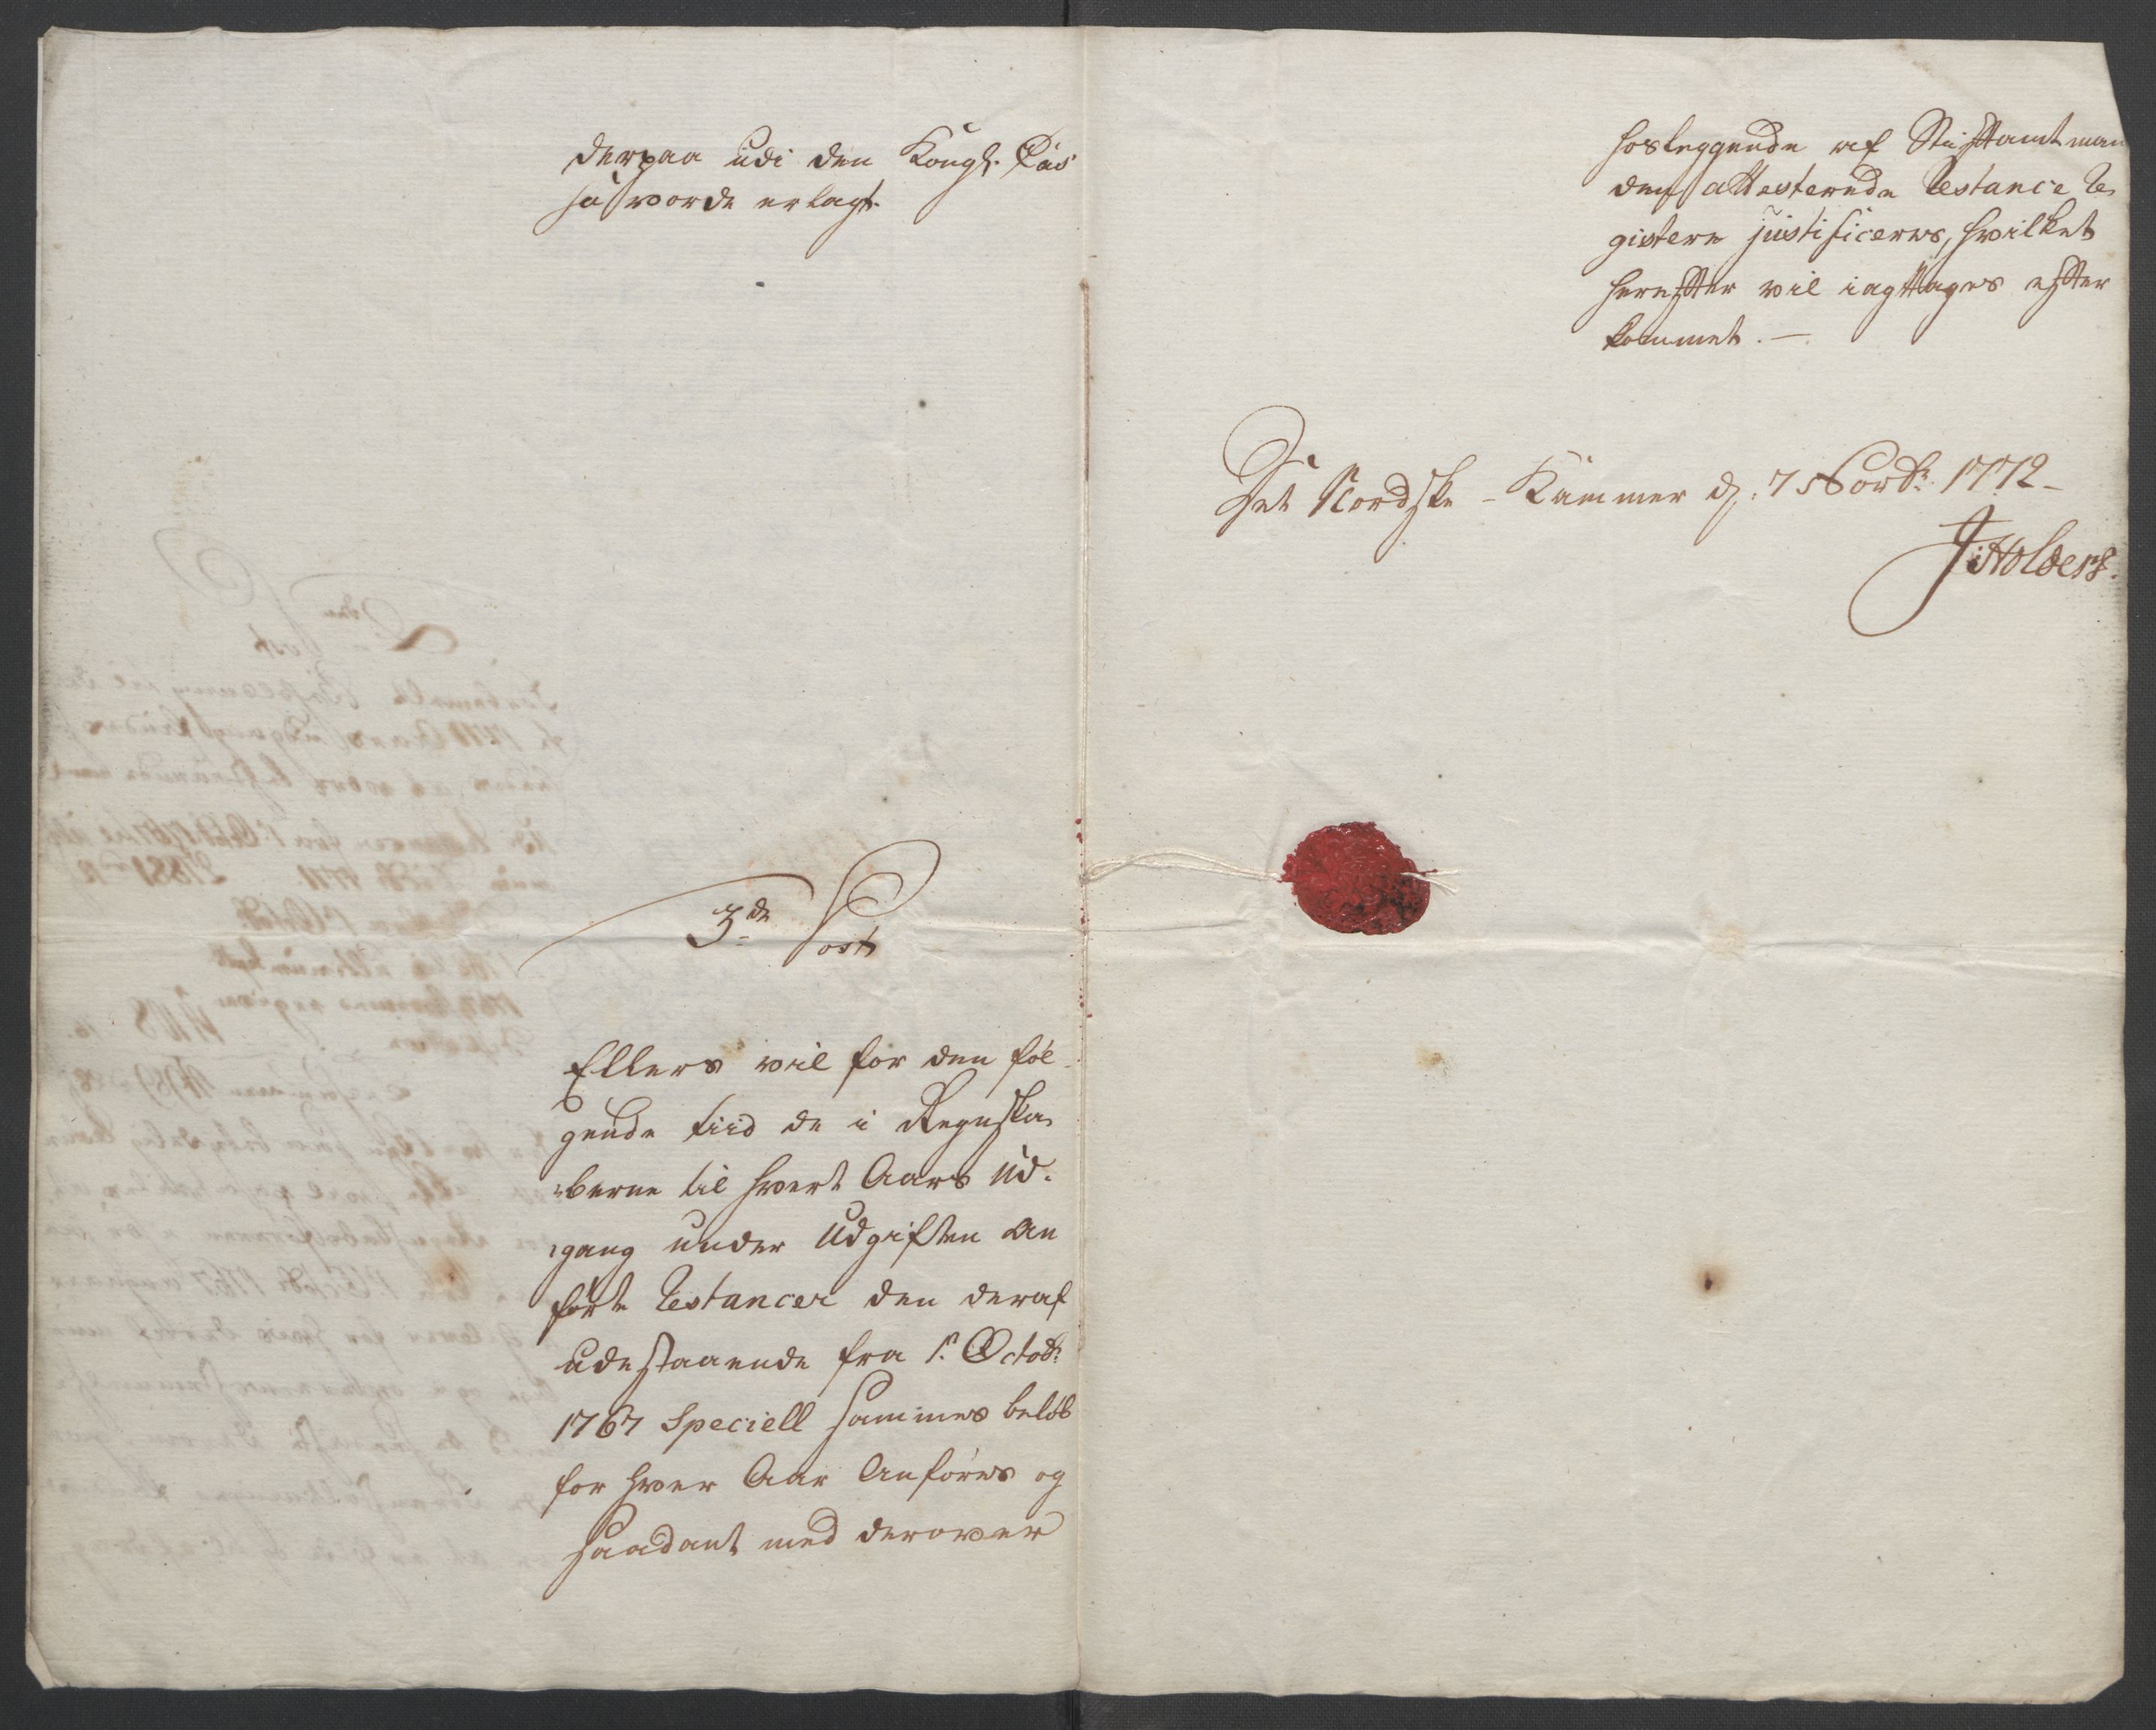 derpaa udi den Kongl. Cas
sa vorde erlagt.
3de Post
Ellers vil for den føl-
gende tiid de i Regnska-
berne til hvert Aars Ud-
gang under Udgiften an
førte Restancer den deraf
udestaaende fra 1. Octobr.
1767 Speciell Summes beløb
for hver Aar Anføres og
saadant med derover
hosleggende af Stiftamtman
den attesterede Restance Re-
gistere justificeres, hvilket
herefter vil iagttages efter
kommet. —
Det Nordske - Kammer d: 7 Novbr: 1772-
J Holders.